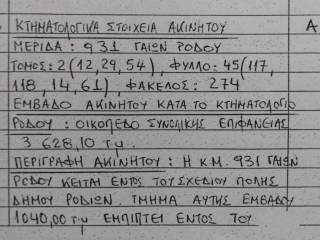 ΚΤΗΜΑΤΟΛΟΓΙΚΑ ΣΤΟΙΧΕΙΑ ΑΚΙΝΗΤΟΥ
Α
ΜΕΡΙΔΑ : 931 ΓΑΙΩΝ ΡΟΔΟΥ
ΤΟΜΟΣ: 2 (12, 29, 54), ΦΥΛΛΟ: 45 (117,
118, 14, 61), ΦΑΚΕΛΟΣ: 274
ΕΜΒΑΔΟ ΑΚΙΝΗΤΟΥ ΚΑΤΑ ΤΟ ΚΤΗΜΑΤΟΛΟΓΙΟ
ΡΟΔΟΥ : ΟΙΚΟΠΕΔΟ ΣΥΝΟΛΙΚΗΣ ΕΠΙΦΑΝΕΙΑΣ
3 628,10 τ.μ.
ΠΕΡΙΓΡΑΦΗ ΑΚΙΝΗΤΟΥ : Η Κ.Μ. 931 ΓΑΙΩΝ
ΡΟΔΟΥ ΚΕΙΤΑΙ ΕΝΤΟΣ ΤΟΥ ΣΧΕΔΙΟΥ ΠΟΛΗΣ
ΔΗΜΟΥ ΡΟΔΙΩΝ. ΤΜΗΜΑ ΑΥΤΗΣ ΕΜΒΑΔΟΥ
1040,00 τ.μ ΕΜΠΙΠΤΕΙ ΕΝΤΟΣ ΤΟΥ